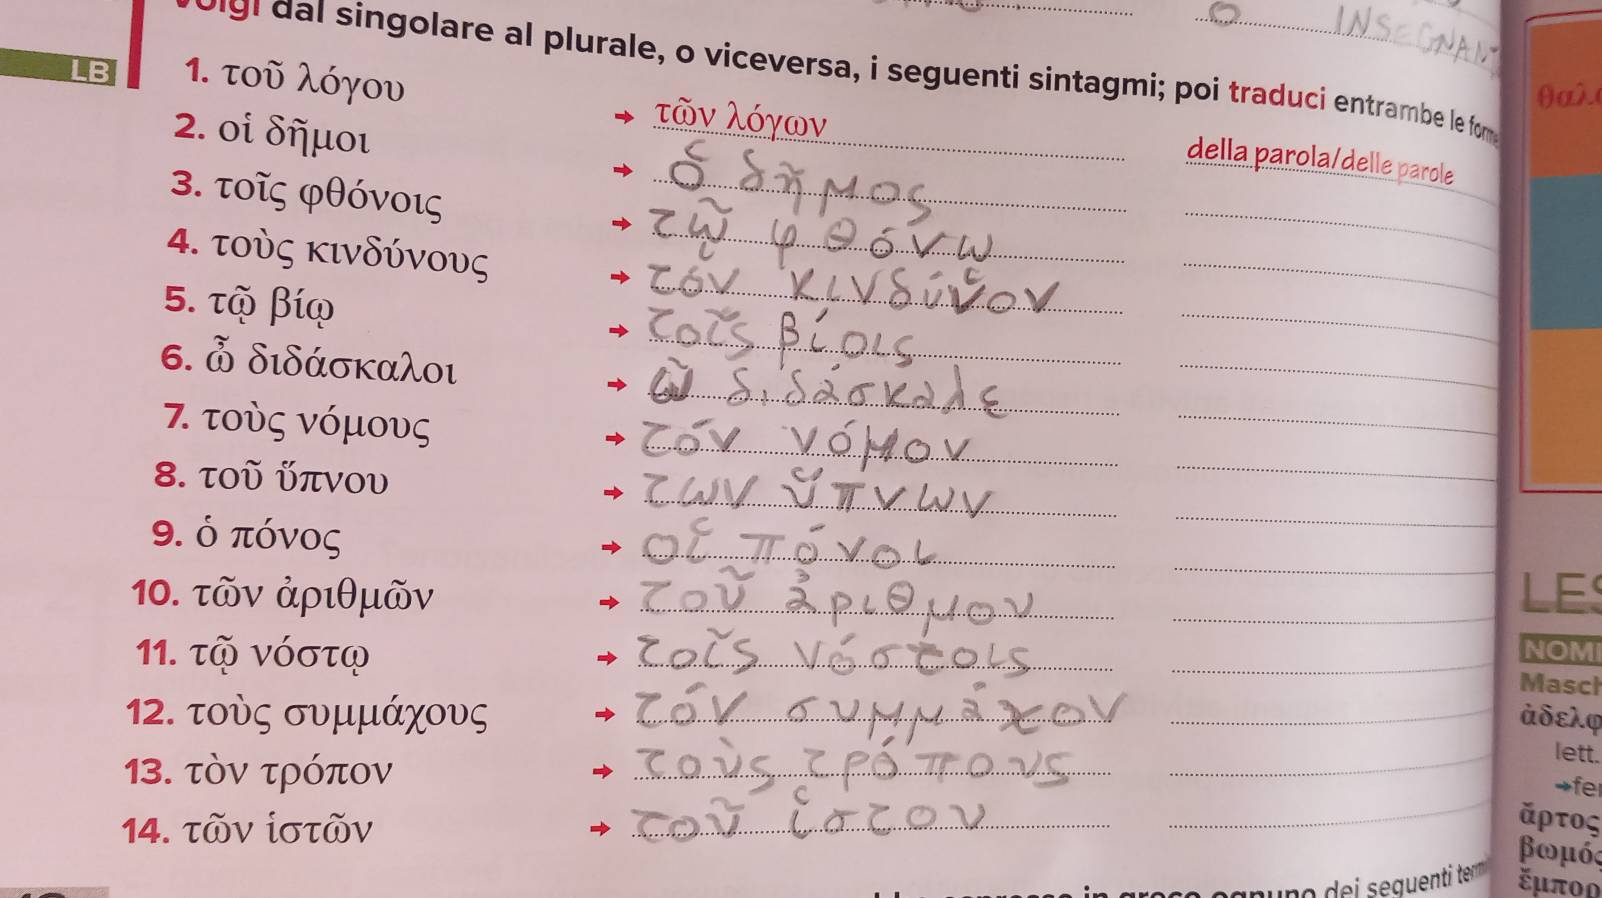 INSEGNANT
dal singolare al plurale, o viceversa, i seguenti sintagmi; poi traduci entrambe le forme
LB
1. τοῦ λόγου → τῶν λόγων della parola/delle parole
2. οἱ δῆμοι → ὁ δῆμος
3. τοῖς φθόνοις → τῷ φθόνω
4. τοὺς κινδύνους → τόν κινδύνον
5. τῷ βίῳ → τοῖς βίοις
6. ὦ διδάσκαλοι → ὦ διδάσκαλε
7. τοὺς νόμους → τόν νόμον
8. τοῦ ὕπνου → των ὕπνων
9. ὁ πόνος → οἱ πόνοι
10. τῶν ἀριθμῶν → τοῦ ἀριθμου
11. τῷ νόστῳ → τοῖς νόστοις
12. τοὺς συμμάχους → τόν συμμάχον
13. τὸν τρόπον → τοὺς τρόπους
14. τῶν ἱστῶν → τοῦ ἱστου
dei seguenti
LES
NOMI
Masch
ἀδελφ
lett.
ἄρτος
βωμός
ἔμπορ